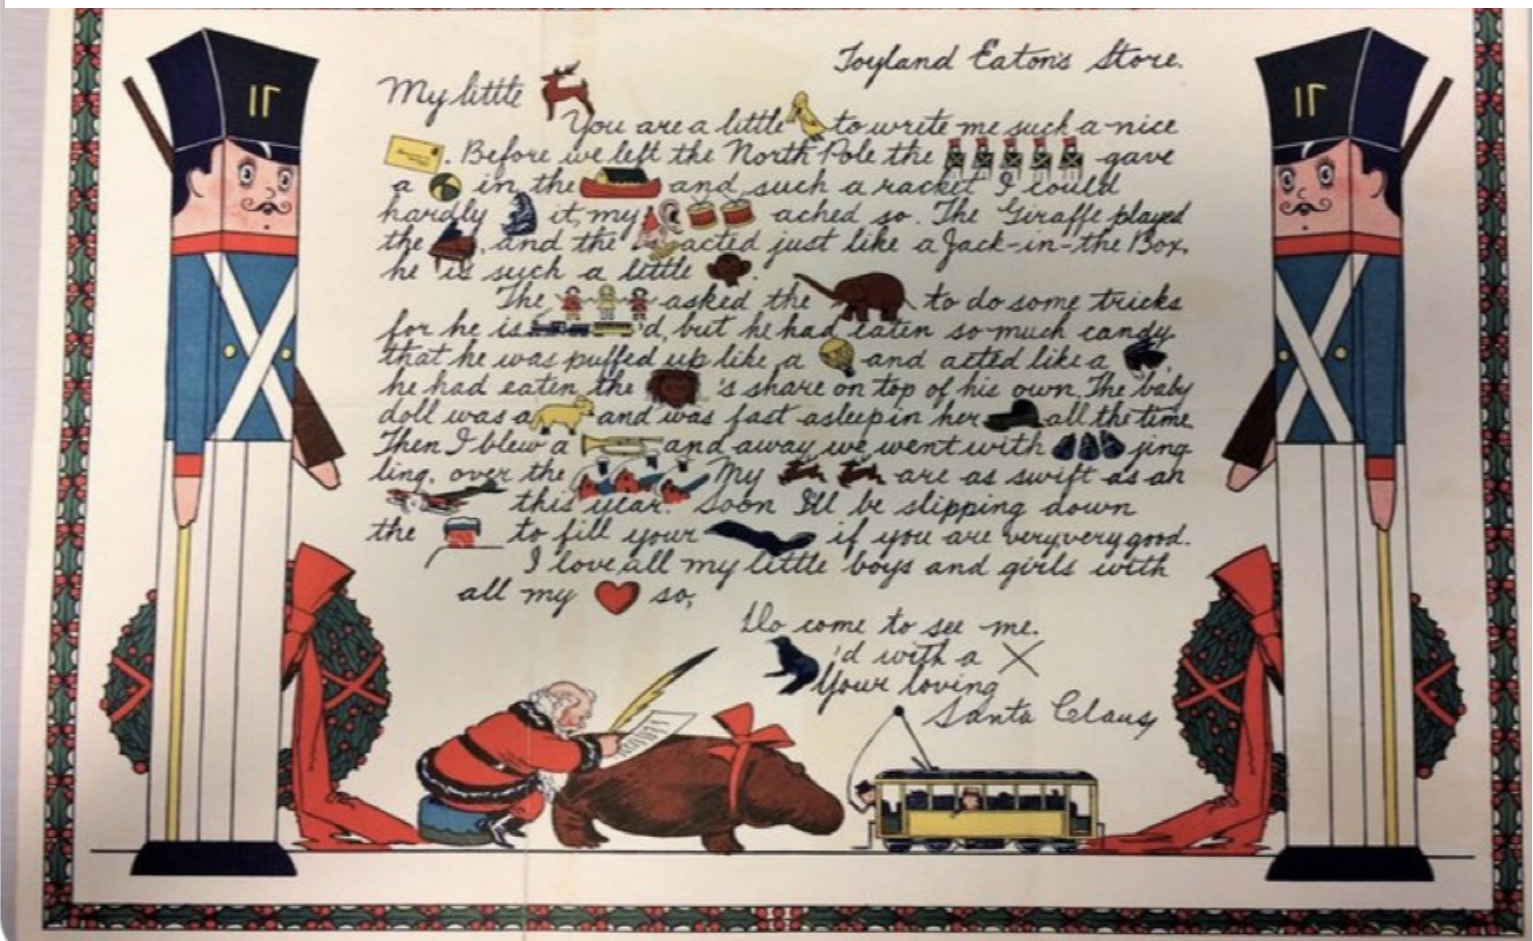 Toyland Eaton's Store.
My little
You are a little to write me such a nice
. Before we left the North Pole the gave
a in the and such a racket I could
hardly it, my ached so. The Giraffe played
the , and the acted just like a Jack-in-the Box,
he is such a little .
The asked the to do some tricks
for he is 'd, but he had eaten so much candy
that he was puffed up like a and acted like a ,
he had eaten the 's share on top of his own. The baby
doll was a and was fast asleep in her all the time
Then I blew a and away we went with jing
ling, over the My are as swift as an
this year. Soon I'll be slipping down
the to fill your if you are very, very good.
I love all my little boys and girls with
all my so,
Do come to see me.
'd with a X
Your loving
Santa Claus